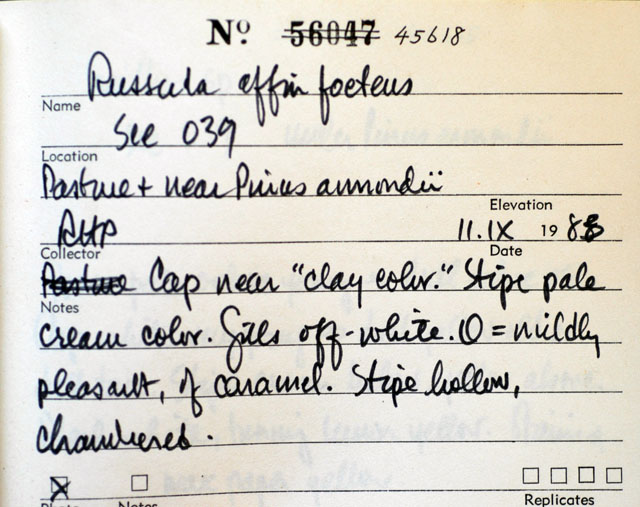 Nº 56047 45618
Russula affin foetens
Name
See 039
Location
Pasture + near Pinus armondii
Elevation
RHP 11.IX 1983
Collector Date
Pasture Cap near "clay color." Stipe pale
Notes
cream color. Gills off-white. O = mildly
pleasant, of caramel. Stipe hollow,
chambered.
Photo Notes Replicates